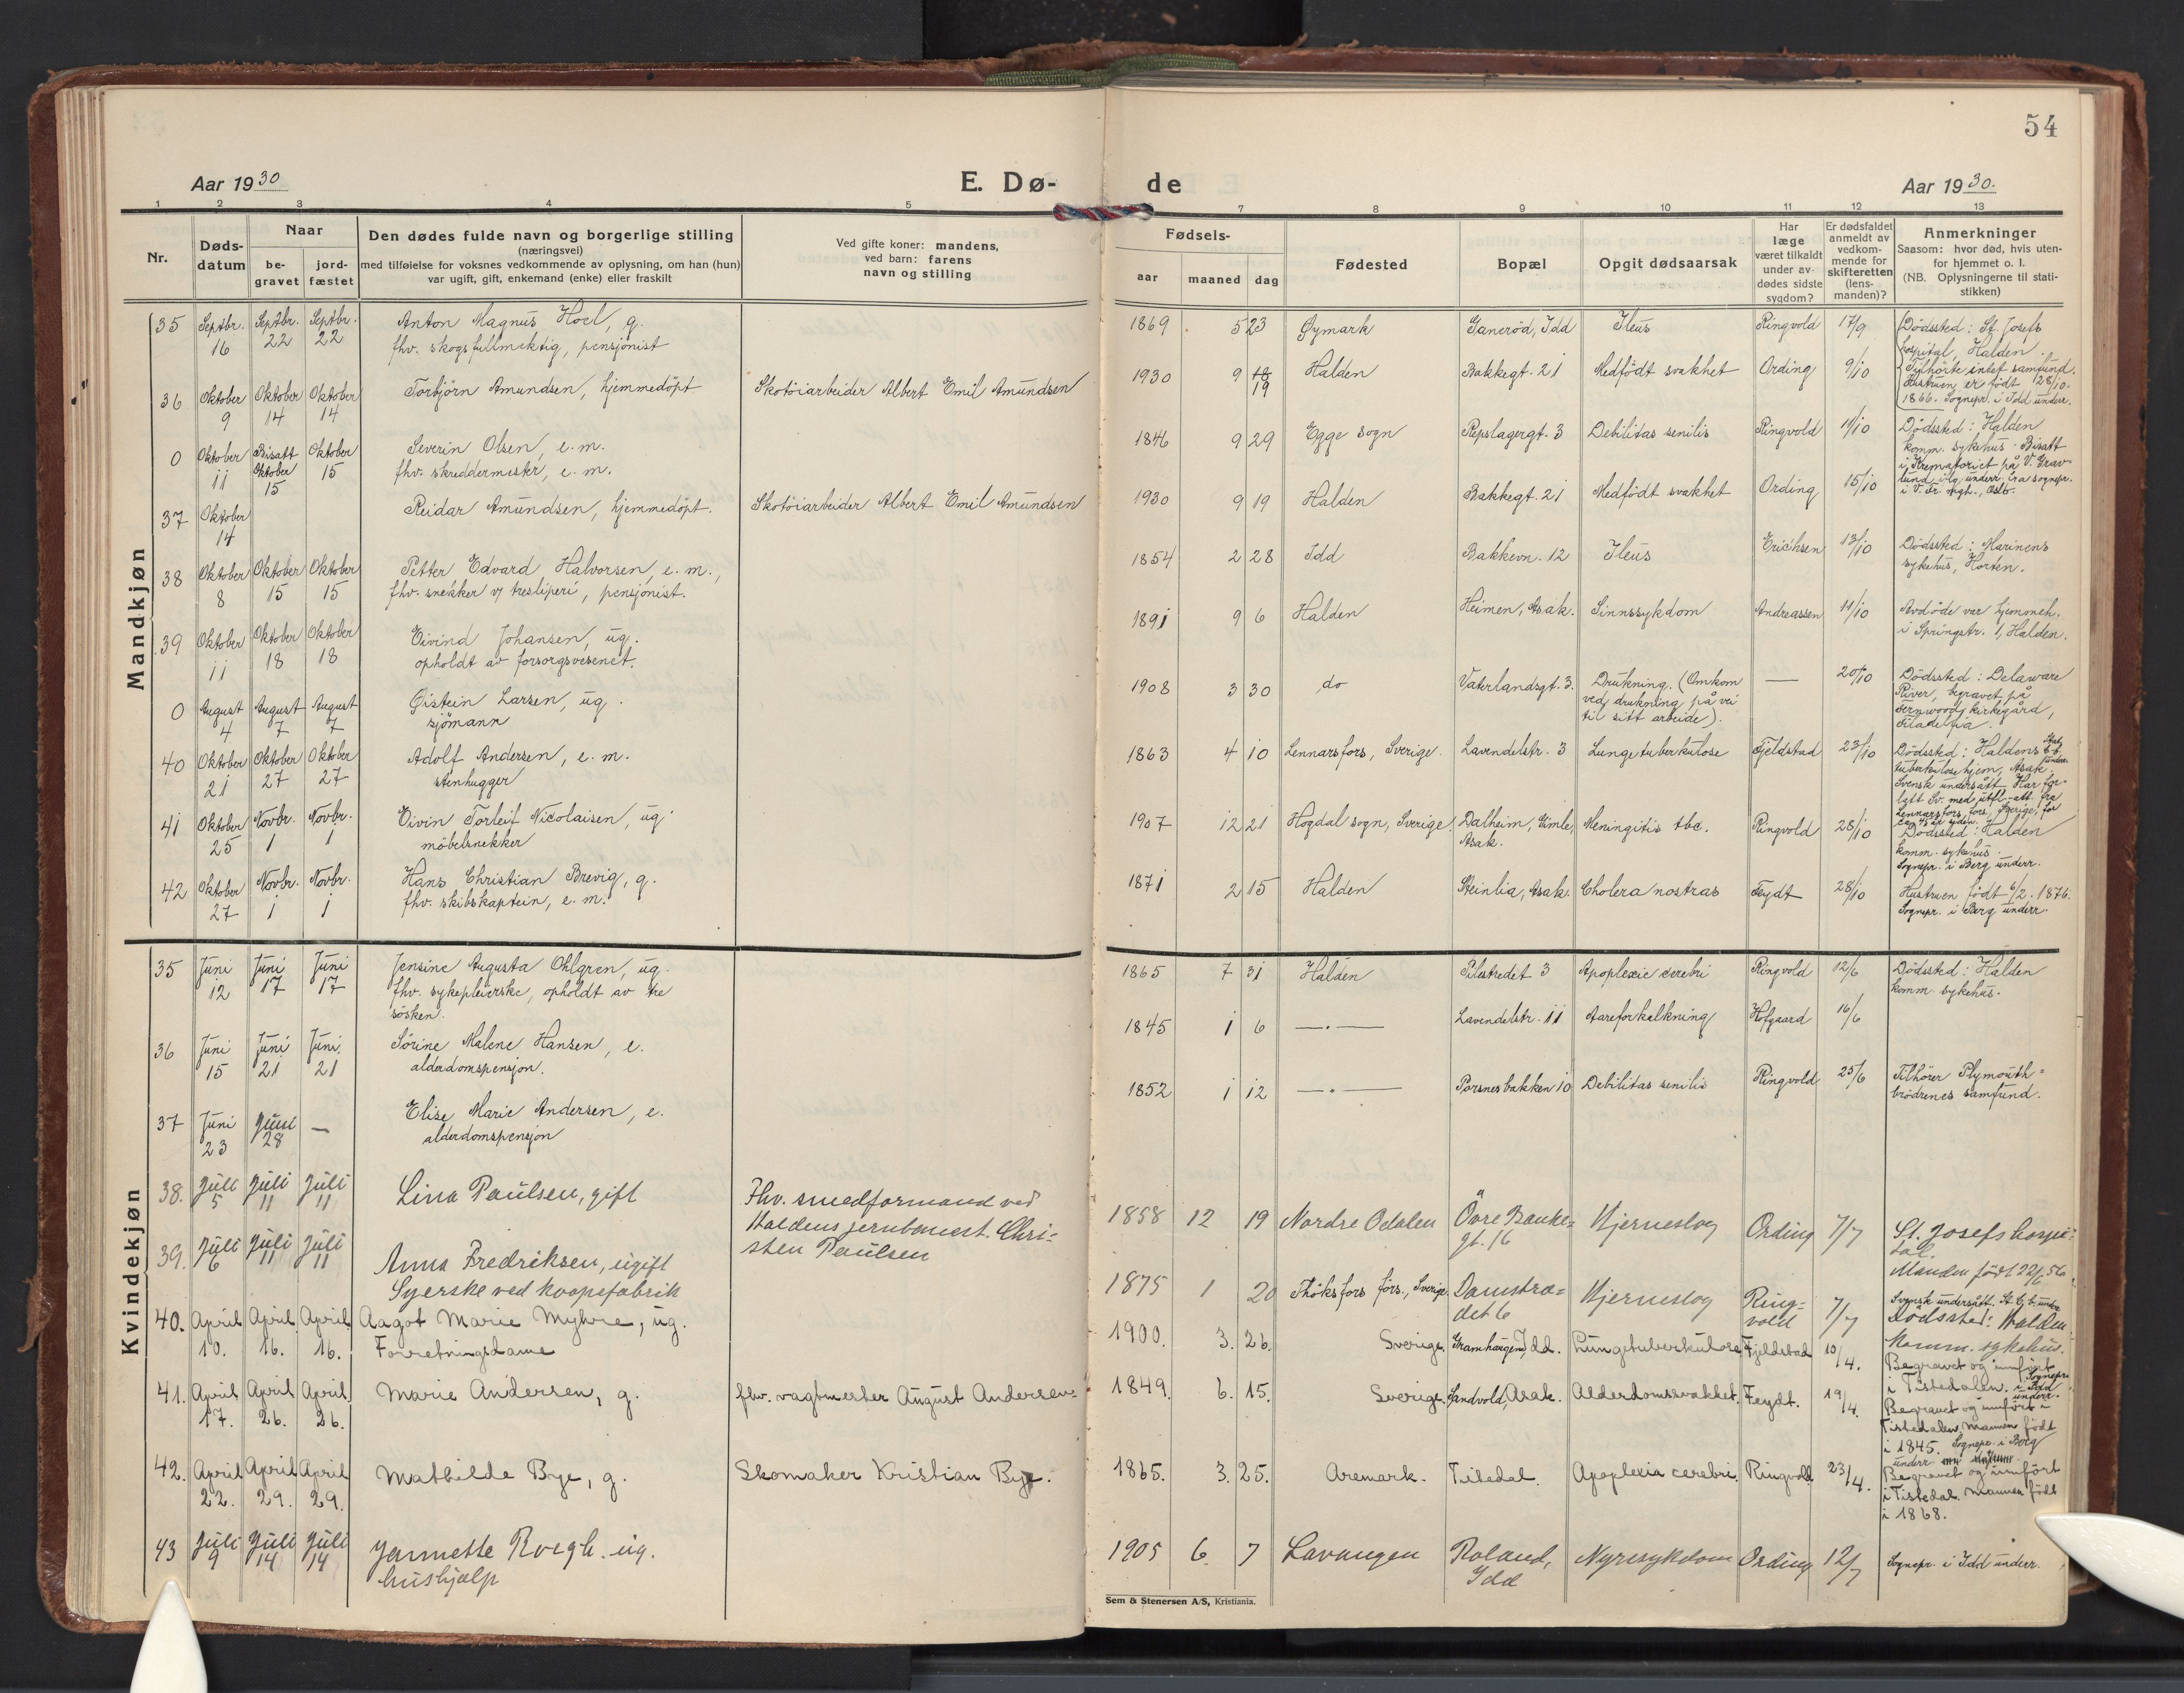 54
Aar 1930
E. Dø-
de
Aar 1930.
1 2 3 4 5
7 8 9 10 11 12 13
Nr.
Døds-
datum
Naar
be-
gravet
jord-
fæstet
Den dødes fulde navn og borgerlige stilling
(næringsvei)
med tilføielse for voksnes vedkommende av oplysning, om han (hun)
var ugift, gift, enkemand (enke) eller fraskilt
Ved gifte koner: mandens,
ved barn: farens
navn og stilling
Fødsels-
aar
maaned
dag
Fødested
Bopæl
Opgit dødsaarsak
Har
læge
været tilkaldt
under av-
dødes sidste
sygdom?
Er dødsfaldet
anmeldt av
vedkom-
mende for
skifteretten
(lens-
manden)?
Anmerkninger
Saasom: hvor død, hvis uten-
for hjemmet o. l.
(NB. Oplysningerne til stati-
stikken)
Mandkjøn
35 Septbr. 16 Septbr. 22 Septbr. 22
Anton Magnus Hoel, g.
fhv. skogsfullmektig, pensjonist
1869 5 23 Øymark Ganerød, Idd Ileus Ringvold 17/9
Dødssted: St. Josefs
hospital, Halden.
Tilhörte intet samfund.
Hustruen er født 128/10.
1866. Sognepr. i Idd underr.
36 Oktober 9 Oktober 14 Oktober 14
Torbjörn Amundsen, hjemmedöpt
Skotöiarbeider Albert Emil Amundsen
1930 9 18 19 Halden Bakkegt. 21 Medfödt svakhet Ording 9/10
0 Oktober 11 Bisatt Oktober 15 Oktober 15
Severin Olsen, e. m.
fhv. skreddermester, e. m.
1846 9 29 Egge sogn Repslagergt. 3 Debilitas senilis Ringvold 11/10
Dödssted: Halden
komm. sykehus. Bisatt
i Krematoriet på V. Grav-
lund, Oslo.
37 Oktober 14
Reidar Amundsen, hjemmedöpt.
Skotöiarbeider Albert Emil Amundsen
1930 9 19 Halden Bakkegt. 21 Medfödt svakhet Ording 15/10
38 Oktober 8 Oktober 15 Oktober 15
Petter Edvard Halvorsen, e. m.,
fhv. snekker v/ tresliperi, pensjonist.
1854 2 28 Idd Bakkevn. 12 Ileus Erichsen 13/10
Dödssted: Marinens
sykehus, Horten.
39 Oktober 11 Oktober 18 Oktober 18
Eivind Johansen, ug.
opholdt av forsorgsvesenet.
1891 9 6 Halden Heimen, Asak. Sinnssykdom Andreassen 11/10
Avdöde var hjemmeh.
i Springstr. 1, Halden.
0 August 4 August 7 August 7
Öistein Larsen, ug.
sjömann
1908 3 30 do Vaterlandsgt. 3. Drukning. (Omkom
ved drukning på vei
til sitt arbeide). — 20/10
Dödssted: Delaware
River, begravet på
Fernwood kirkegård,
Filadelfia.
40 Oktober 21 Oktober 27 Oktober 27
Adolf Andersen, e. m.
stenhugger
1863 4 10 Lennarsfors, Sverige. Lavendelstr. 3 Lungetuberkulose Fjeldstad 23/10
Dödssted: Haldens
tuberkulosehjem, Asak.
Svensk undersått. Har for-
latt Sv. med utfl.-att. fra
Lennarsfors fors., Sverige, for
ca. 45 år siden.
41 Oktober 25 Novbr. 1 Novbr. 1
Eivin Torleif Nicolaisen, ug.
möbelsnekker
1907 12 21 Hogdal sogn, Sverige. Dalheim, Gimle,
Asak. Meningitis tbc. Ringvold 28/10
Dödssted: Halden
komm. sykehus.
Sognepr. i Berg underr.
42 Oktober 27 Novbr. 1 Novbr. 1
Hans Christian Brevig, g.
fhv. skibskaptein, e. m.
1871 2 15 Halden Steinlia, Asak. Cholera nostras Feydt 28/10
Hustruen född 6/2. 1876.
Sognepr. i Berg underr.
Kvindekjøn
35 Juni 12 Juni 17 Juni 17
Jensine Augusta Ohlgren, ug.
fhv. sykepleierske, opholdt av tre
sösken.
1865 7 31 Halden Pilestredet 3 Apoplexie cerebri Ringvold 12/6
Dödssted: Halden
komm. sykehus.
36 Juni 15 Juni 21 Juni 21
Sörine Malene Hansen, e.
alderdomspensjon.
1845 1 6 —.— Lavendelstr. 11 Aareforkalkning Hofgaard 16/6
37 Juni 23 Juni 28 —
Elise Marie Andersen, e.
alderdomspensjon
1852 1 12 —.— Porsnesbakken 10 Debilitas senilis Ringvold 25/6
Tilhörer Plymouth-
brödrenes samfund.
38. Juli 5 Juli 11 Juli 11
Lina Paulsen, gift
Fhv. smedformand ved
Haldens jernbanest. Chri-
sten Paulsen
1858 12 19 Nordre Odalen Övre Banke-
gt. 16 Hjerneslag Ording 7/7
St. Josefs hospi-
tal.
Manden född 22/6 56
39. Juli 6 Juli 11 Juli 11
Anna Fredriksen, ugift
Syerske ved kaapefabrik
1875 1 20 Thöksfors förs., Sverige Damstræ-
det 6 Hjerneslag Ring-
vold 7/7
Svensk undersått.
Dödssted: Halden
Komm. sykehus.
40. April 10. April 16. April 16.
Aagot Marie Myhre, ug.
Forretningsdame
1900. 3. 26. Sverige. Idd. Lungetuberkulose Fjeldstad 10/4.
Begravet og innfört
i Tistedalen. Sognepr.
i Idd
underr.
41. April 17. April 26. April 26.
Marie Andersen, g.
fhv. vagtmester August Andersen.
1849. 6. 15. Sverige. Sandvold, Asak. Alderdomssvakhet. Feydt. 19/4.
Begravet og innfört i
Tistedalen, mannen födt
i 1845. Sognepr. i Berg
underr.
42. April 22. April 29. April 29.
Mathilde Bye, g.
Skomaker Kristian Bye.
1865. 3. 25. Aremark. Tistedal. Apoplexia cerebri. Ringvold 23/4.
Begravet og innfört
i Tistedal. Mannen födt
i 1868.
43 Juli 9 Juli 14 Juli 14
ug.
hushjælp
1905 6 7 Lavangen Roland,
Idd Nyresykdom Ording 12/7
Sognepr. i Idd underr.
Sem & Stenersen A/S, Kristiania.